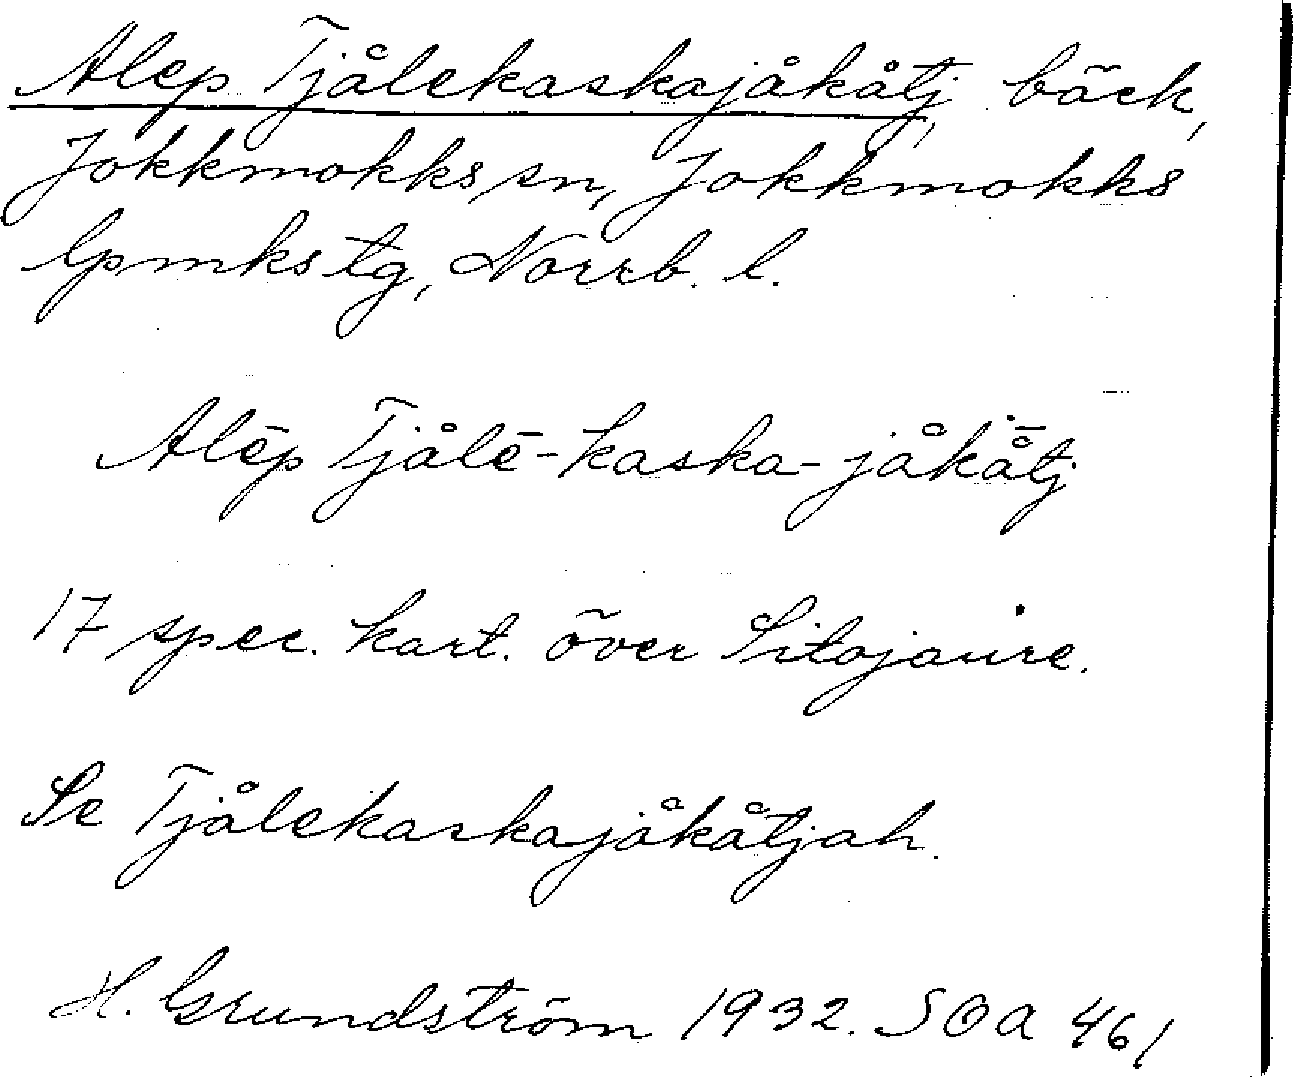 Alep Tjålekaskajåkåtj, bäck,
Jokkmokks sn, Jokkmokks
lpmks tg, Norrb. l.
Alēp Tjålē-kaska-jåkå̄tj
17 spec. kart. över Sitojaure.
Se Tjålekaskajåkåtjah.
H. Grundström 1932. SOA 461